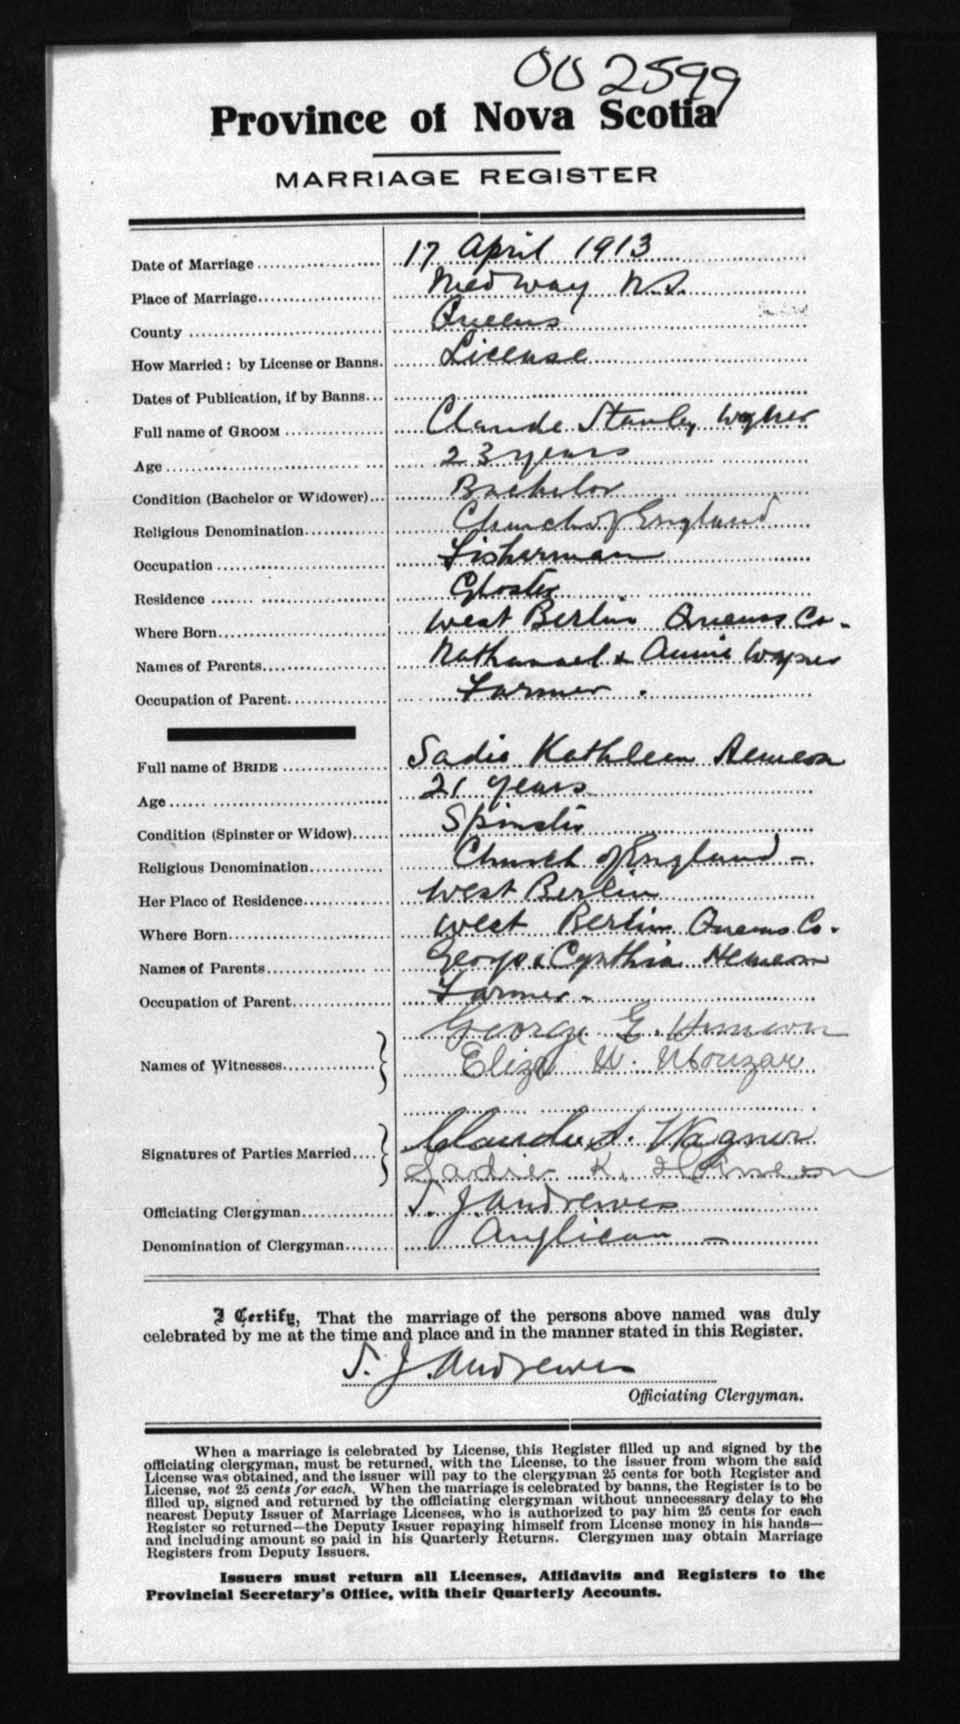 002599
Province of Nova Scotia
MARRIAGE REGISTER
Date of Marriage 17 April 1913
Place of Marriage Medway N.S.
County Queens
How Married: by License or Banns. License
Dates of Publication, if by Banns
Full name of GROOM Claude Stanley Wagner
Age 23 years
Condition (Bachelor or Widower) Bachelor
Religious Denomination Church of England
Occupation Fisherman
Residence Gloster
Where Born West Berlin Queens Co.
Names of Parents Nathanael & Annie Wagner
Occupation of Parent Farmer.
Full name of BRIDE Sadie Kathleen Hemeon
Age 21 years
Condition (Spinster or Widow) Spinster
Religious Denomination Church of England -
Her Place of Residence West Berlin
Where Born West Berlin Queens Co.
Names of Parents George & Cynthia Hemeon
Occupation of Parent Farmer -
George E. Hemeon
Names of Witnesses Eliza
Claude S. Wagner
Signatures of Parties Married
Sadie K. Hemeon
Officiating Clergyman J. Andrewes
Denomination of Clergyman Anglican -
I Certify, That the marriage of the persons above named was duly
celebrated by me at the time and place and in the manner stated in this Register.
J. Andrewes
Officiating Clergyman.
When a marriage is celebrated by License, this Register filled up and signed by the
officiating clergyman, must be returned, with the License, to the issuer from whom the said
License was obtained, and the issuer will pay to the clergyman 25 cents for both Register and
License, not 25 cents for each. When the marriage is celebrated by banns, the Register is to be
filled up, signed and returned by the officiating clergyman without unnecessary delay to the
nearest Deputy Issuer of Marriage Licenses, who is authorized to pay him 25 cents for each
Register so returned—the Deputy Issuer repaying himself from License money in his hands—
and including amount so paid in his Quarterly Returns. Clergymen may obtain Marriage
Registers from Deputy Issuers.
Issuers must return all Licenses, Affidavits and Registers to the
Provincial Secretary's Office, with their Quarterly Accounts.